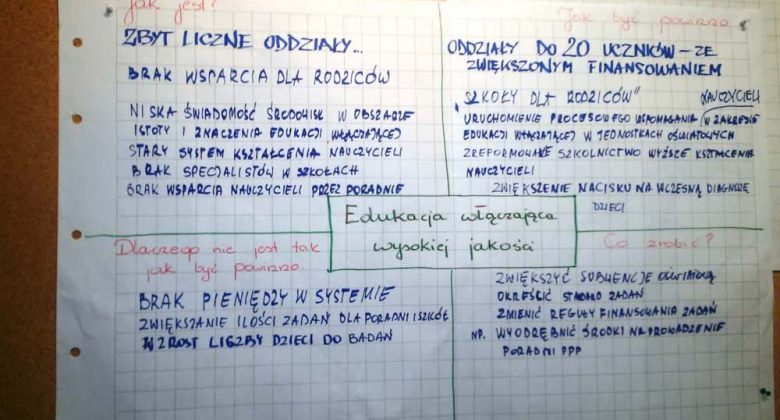 Jak jest?
ZBYT LICZNE ODDZIAŁY...
BRAK WSPARCIA DLA RODZICÓW
NISKA ŚWIADOMOŚĆ ŚRODOWISK W OBSZARZE
ISTOTY I ZNACZENIA EDUKACJI WŁĄCZAJĄCEJ
STARY SYSTEM KSZTAŁCENIA NAUCZYCIELI
BRAK SPECJALISTÓW W SZKOŁACH
BRAK WSPARCIA NAUCZYCIELI PRZEZ PORADNIE
Jak być powinno
ODDZIAŁY DO 20 UCZNIÓW – ZE
ZWIĘKSZONYM FINANSOWANIEM
„SZKOŁY DLA RODZICÓW"
NAUCZYCIELI
URUCHOMIENIE PROCESOWEGO WSPOMAGANIA (W ZAKRESIE
EDUKACJI WŁĄCZAJĄCEJ W JEDNOSTKACH OŚWIATOWYCH
ZREFORMOWANE SZKOLNICTWO WYŻSZE KSZTAŁCENIA
NAUCZYCIELI
ZWIĘKSZENIE NACISKU NA WCZESNĄ DIAGNOZĘ
DZIECI
Edukacja włączająca
wysokiej jakości
Dlaczego nie jest tak
jak być powinno.
BRAK PIENIĘDZY W SYSTEMIE
ZWIĘKSZANIE ILOŚCI ZADAŃ DLA PORADNI I SZKÓŁ
WZROST LICZBY DZIECI DO BADAŃ
Co zrobić?
ZWIĘKSZYĆ SUBWENCJE OŚWIATOWĄ
OKREŚLIĆ STANDARD ZADAŃ
ZMIENIĆ REGUŁY FINANSOWANIA ZADAŃ
NP. WYODRĘBNIĆ ŚRODKI NA PROWADZENIE
PORADNI PPP